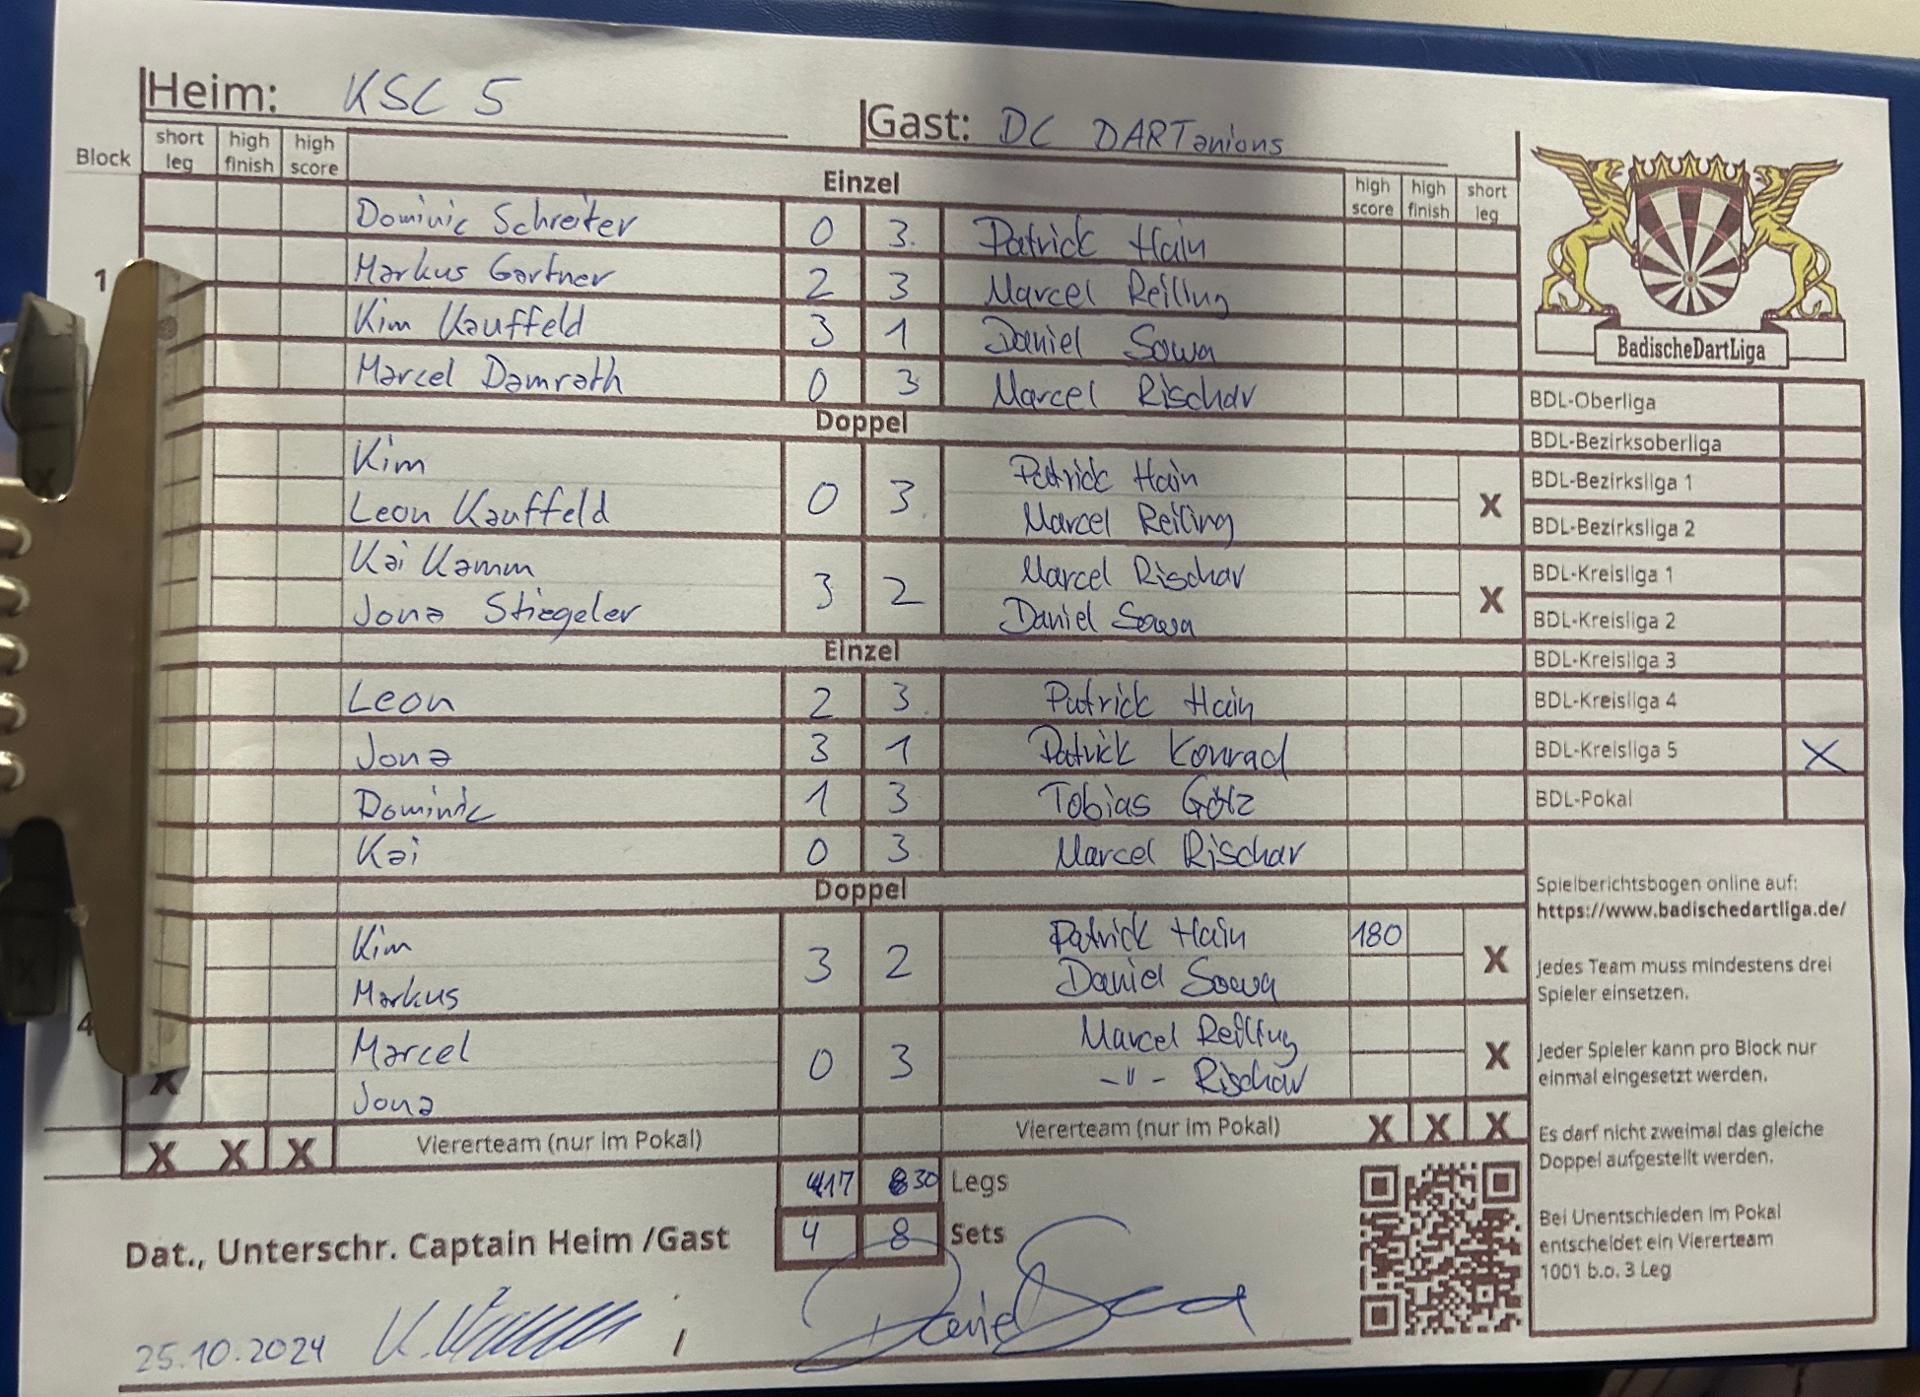 Heim: KSC 5 Gast: DC DARTanions
Block short leg high finish high score Einzel high score high finish short leg
Dominic Schreiter 0 3 Patrick Hain
1 Markus Gartner 2 3 Marcel Reiling
Kim Kauffeld 3 1 Daniel Sowa
Marcel Damrath 0 3 Marcel Rischar
Doppel
Kim Patrick Hain
0 3 X
Leon Kauffeld Marcel Reiling
Kai Kamm Marcel Rischar
3 2 X
Jona Stiegeler Daniel Sowa
Einzel
Leon 2 3 Patrick Hain
Jona 3 1 Patrick Konrad
Dominic 1 3 Tobias Götz
Kai 0 3 Marcel Rischar
Doppel
Kim Patrick Hain 180
3 2 X
Markus Daniel Sowa
4 Marcel Marcel Reiling
0 3 X
X Jona -"- Rischar
X X X Viererteam (nur im Pokal) Viererteam (nur im Pokal) X X X
17 30 Legs
4 8 Sets
Dat., Unterschr. Captain Heim /Gast
25.10.2024 / Daniel Sowa
BadischeDartLiga
BDL-Oberliga
BDL-Bezirksoberliga
BDL-Bezirksliga 1
BDL-Bezirksliga 2
BDL-Kreisliga 1
BDL-Kreisliga 2
BDL-Kreisliga 3
BDL-Kreisliga 4
BDL-Kreisliga 5 X
BDL-Pokal
Spielberichtsbogen online auf:
https://www.badischedartliga.de/
Jedes Team muss mindestens drei
Spieler einsetzen.
Jeder Spieler kann pro Block nur
einmal eingesetzt werden.
Es darf nicht zweimal das gleiche
Doppel aufgestellt werden.
Bei Unentschieden im Pokal
entscheidet ein Viererteam
1001 b.o. 3 Leg